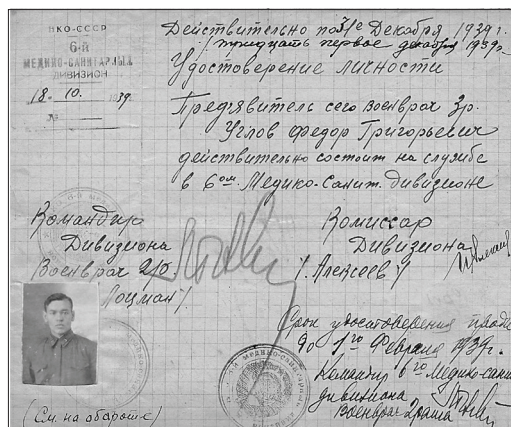 НКО-СССР
6-й
МЕДИКО-САНИТАРНЫЙ
ДИВИЗИОН
18 - 10. 1939.
№
Действительно по 31е Декабря 1939г.
/тридцать первое декабря 1939г.
Удостоверение личности
Предъявитель сего Военврач 3р.
Углов Федор Григорьевич
действительно состоит на службе
в 6ом Медико-Санит. дивизионе
Командир
Дивизиона
Военврач 2/р.
/Лоцман/
Комиссар
Дивизиона
/Алексеев/
Срок удостоверения
до 1го Февраля 1939г.
Командир 6го Медико-сани
дивизиона
Военврач 2ранга
(См. на обороте)